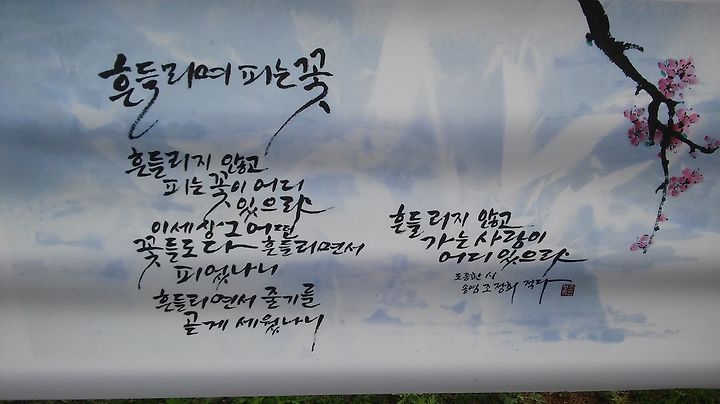 흔들리며 피는 꽃
흔들리지 않고
피는 꽃이 어디
있으랴
이세상 그 어떤
꽃들도 다 흔들리면서
피었나니
흔들리면서 줄기를
곧게 세웠나니
흔들리지 않고
가는 사랑이
어디 있으랴
도종환 시
조정희 적다